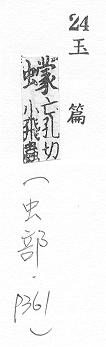 24
玉篇
蠓亡孔切
小飛蟲
(虫部·P361)